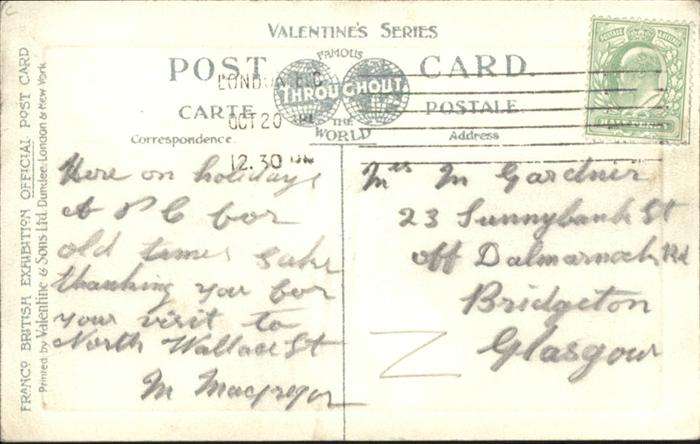 VALENTINE'S SERIES
POST CARD
FAMOUS
THROUGHOUT
THE
WORLD
CARTE POSTALE
Correspondence
Address
LONDON E.C.
OCT 20
12.30 PM
Here on holidays
A P C for
old times sake
thanking you for
your visit to
North Wallace St
M Macgregor
Mrs M Gardner
23 Sunnybank St
off Dalmarnock Rd
Bridgeton
Glasgow
FRANCO BRITISH EXHIBITION OFFICIAL POST CARD
Printed by Valentine & Sons Ltd. Dundee, London & New York